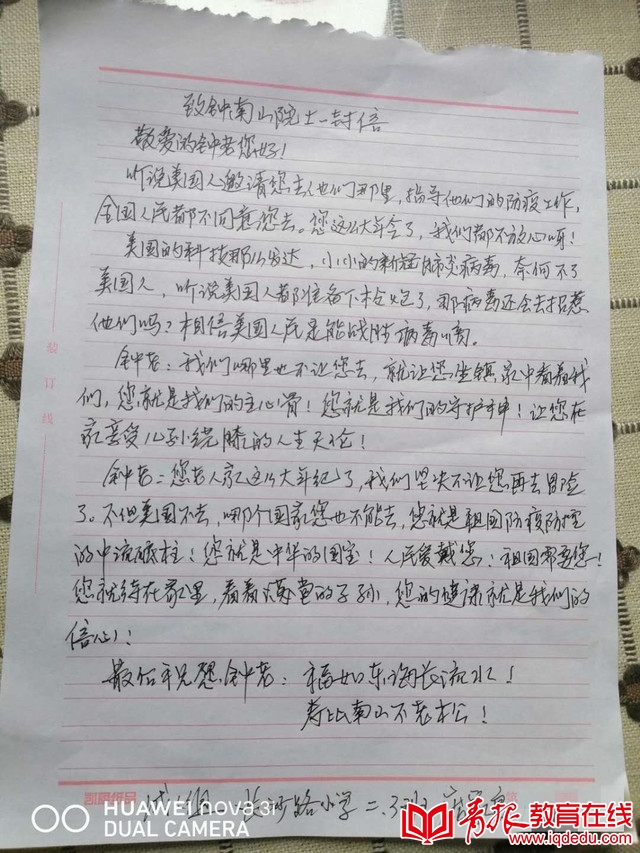 致钟南山院士一封信
敬爱的钟老您好!
听说美国人邀请您去他们那里,指导他们的防疫工作,
全国人民都不同意您去。您这么大年令了,我们都不放心呀!
美国的科技那么发达,小小的新冠肺炎病毒,奈何不了
美国人,听说美国人都准备下枪炮了,那病毒还会去招惹
他们吗?相信美国人民是能战胜病毒的。
钟老:我们哪里也不让您去,就让您坐镇家中看着我
们,您就是我们的主心骨!您就是我们的守护神!让您在
家享受儿孙绕膝的人生天论!
钟老:您老人家这么大年纪了,我们坚决不让您再去冒险
了。不但美国不去,哪个国家您也不能去,您就是祖国防疫防控
的中流砥柱!您就是中华的国宝!人民爱戴您!祖国需要您!
您就待在家里,看看满堂的子孙,您的健康就是我们的
信心!
最后祝愿钟老:福如东海长流水!
寿比南山不老松!
长沙路小学二、3班
装订线
HUAWEI nova 3i
DUAL CAMERA
青报教育在线
www.iqdedu.com